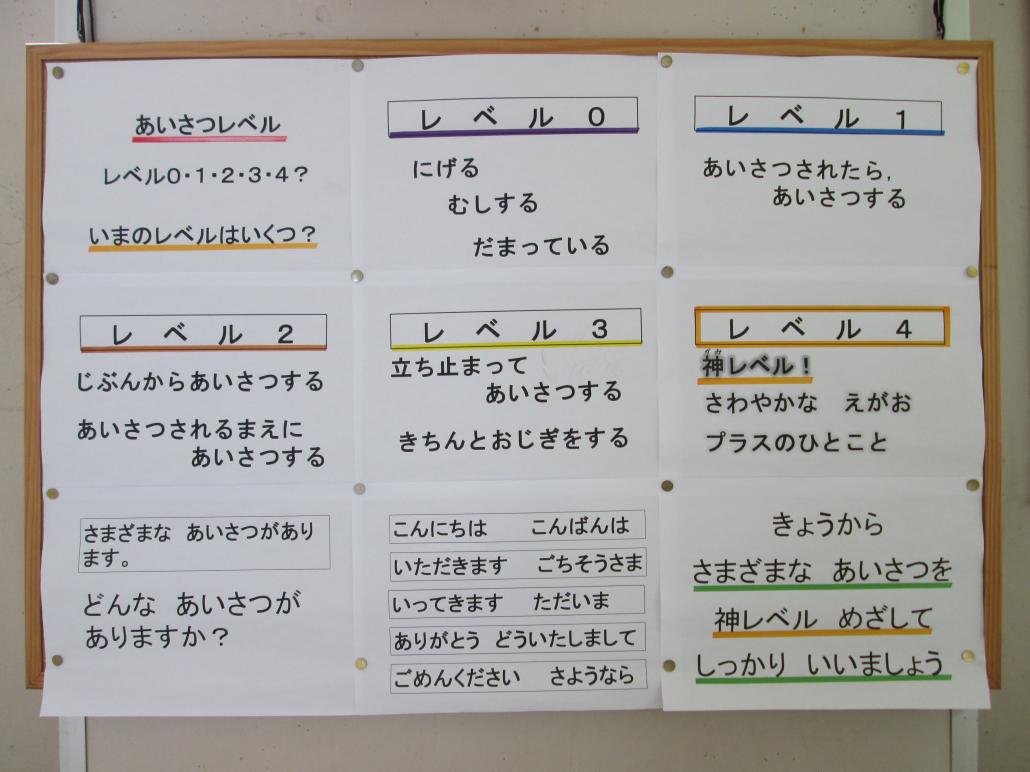 あいさつレベル
レベル０・１・２・３・４？
いまのレベルはいくつ？
レベル０
にげる
むしする
だまっている
レベル１
あいさつされたら，
あいさつする
レベル２
じぶんからあいさつする
あいさつされるまえに
あいさつする
レベル３
立ち止まって
あいさつする
きちんとおじぎをする
レベル４
神レベル！
さわやかな　えがお
プラスのひとこと
さまざまな　あいさつがあり
ます。
どんな　あいさつが
ありますか？
こんにちは　こんばんは
いただきます　ごちそうさま
いってきます　ただいま
ありがとう　どういたしまして
ごめんください　さようなら
きょうから
さまざまな　あいさつを
神レベル　めざして
しっかり　いいましょう